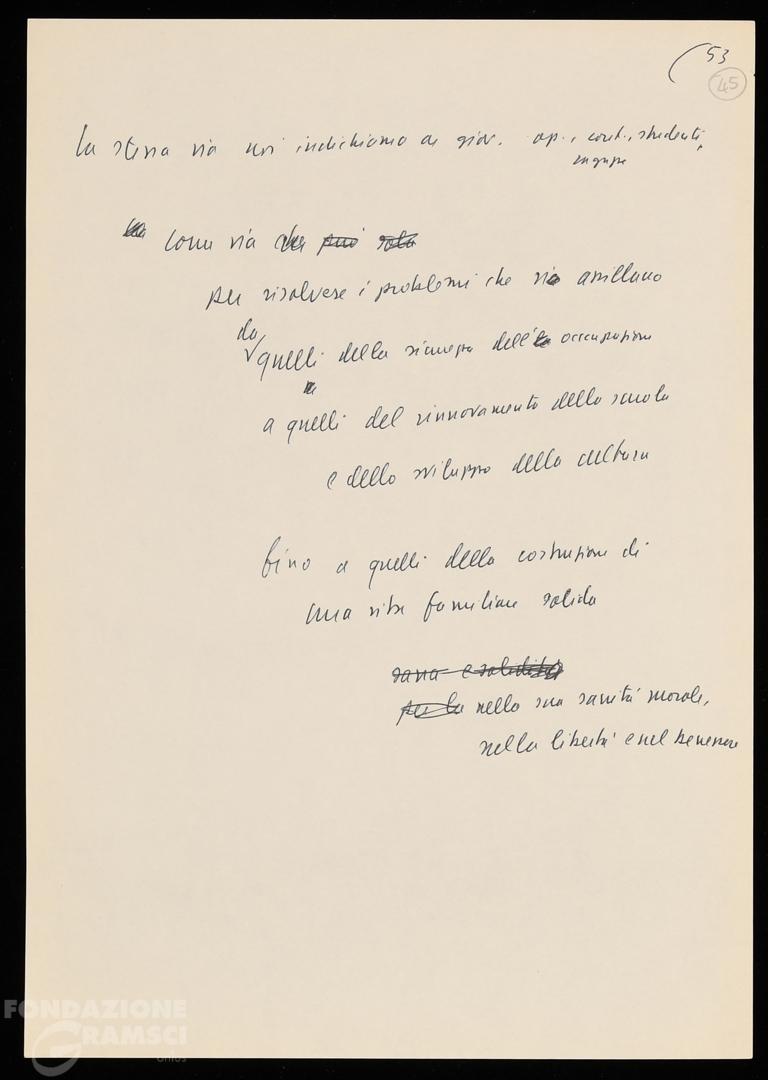 53
45
La stessa via noi indichiamo ai giov. op., cont., studenti,
come via che può sola
per risolvere i problemi che vi assillano
da
quelli della sicurezza dell'occupazione
a quelli del rinnovamento della scuola
e dello sviluppo della cultura
fino a quelli della costruzione di
una vita familiare solida
sana e solida
per la nella sua sanità morale,
nella libertà e nel benessere
FONDAZIONE
GRAMSCI
onlus